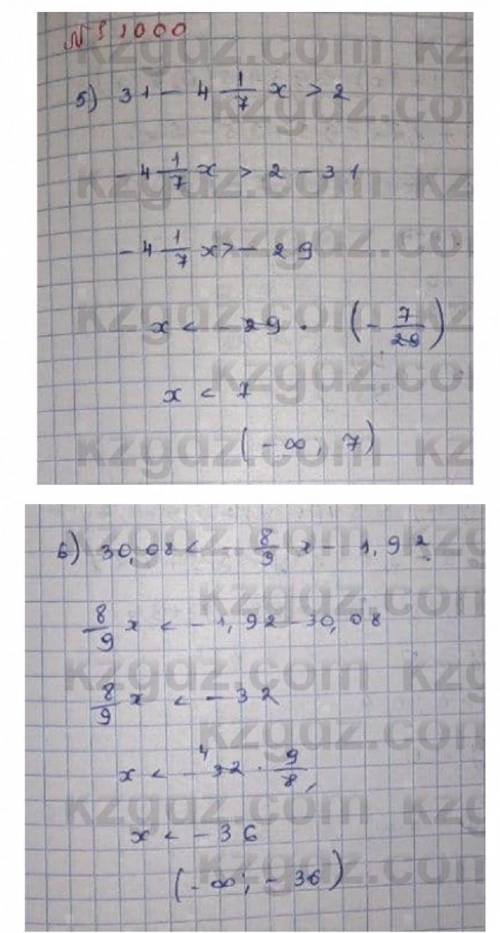 № 1000
5) 31 - 4 1/7 x > 2
- 4 1/7 x > 2 - 31
- 4 1/7 x > - 29
x < - 29 · (- 7/29)
x < 7
(-∞; 7)
6) 30,08 < - 8/9 x - 1,92
8/9 x < - 1,92 - 30,08
8/9 x < - 32
x < - 32 · 9/8
4
x < - 36
(-∞; - 36)
kzgdz.com